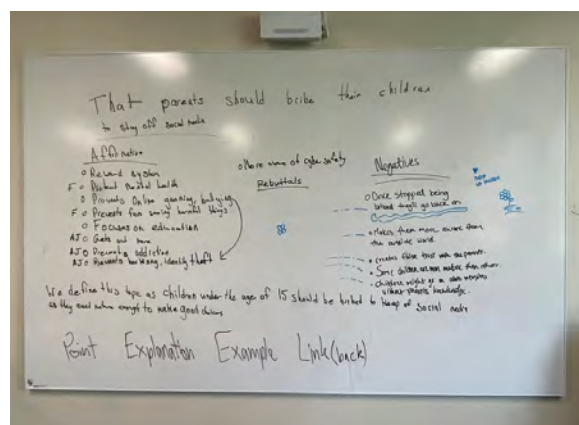 That parents should bribe their children
to stay off social media
Affirmative
o Reward system
F o Protect mental health
o Prevents Online grooming, bullying
F o Prevents from seeing harmful things
o Focuses on education
AJ o Gets out more
AJ o Prevents addiction
AJ o Prevents hacking, identity theft
o More aware of cyber safety
Rebuttals
Negatives
o Once stopped being
bribed they'll go back on
• Makes them more aware than
the outside world.
• creates false trust with the parents.
• Some children are more mature than other.
• Children might go on other websites
without parents' knowledge.
We define this topic as children under the age of 15 should be bribed to keep of social media
as they arent mature enough to make good choices
Point Explanation Example Link (back)